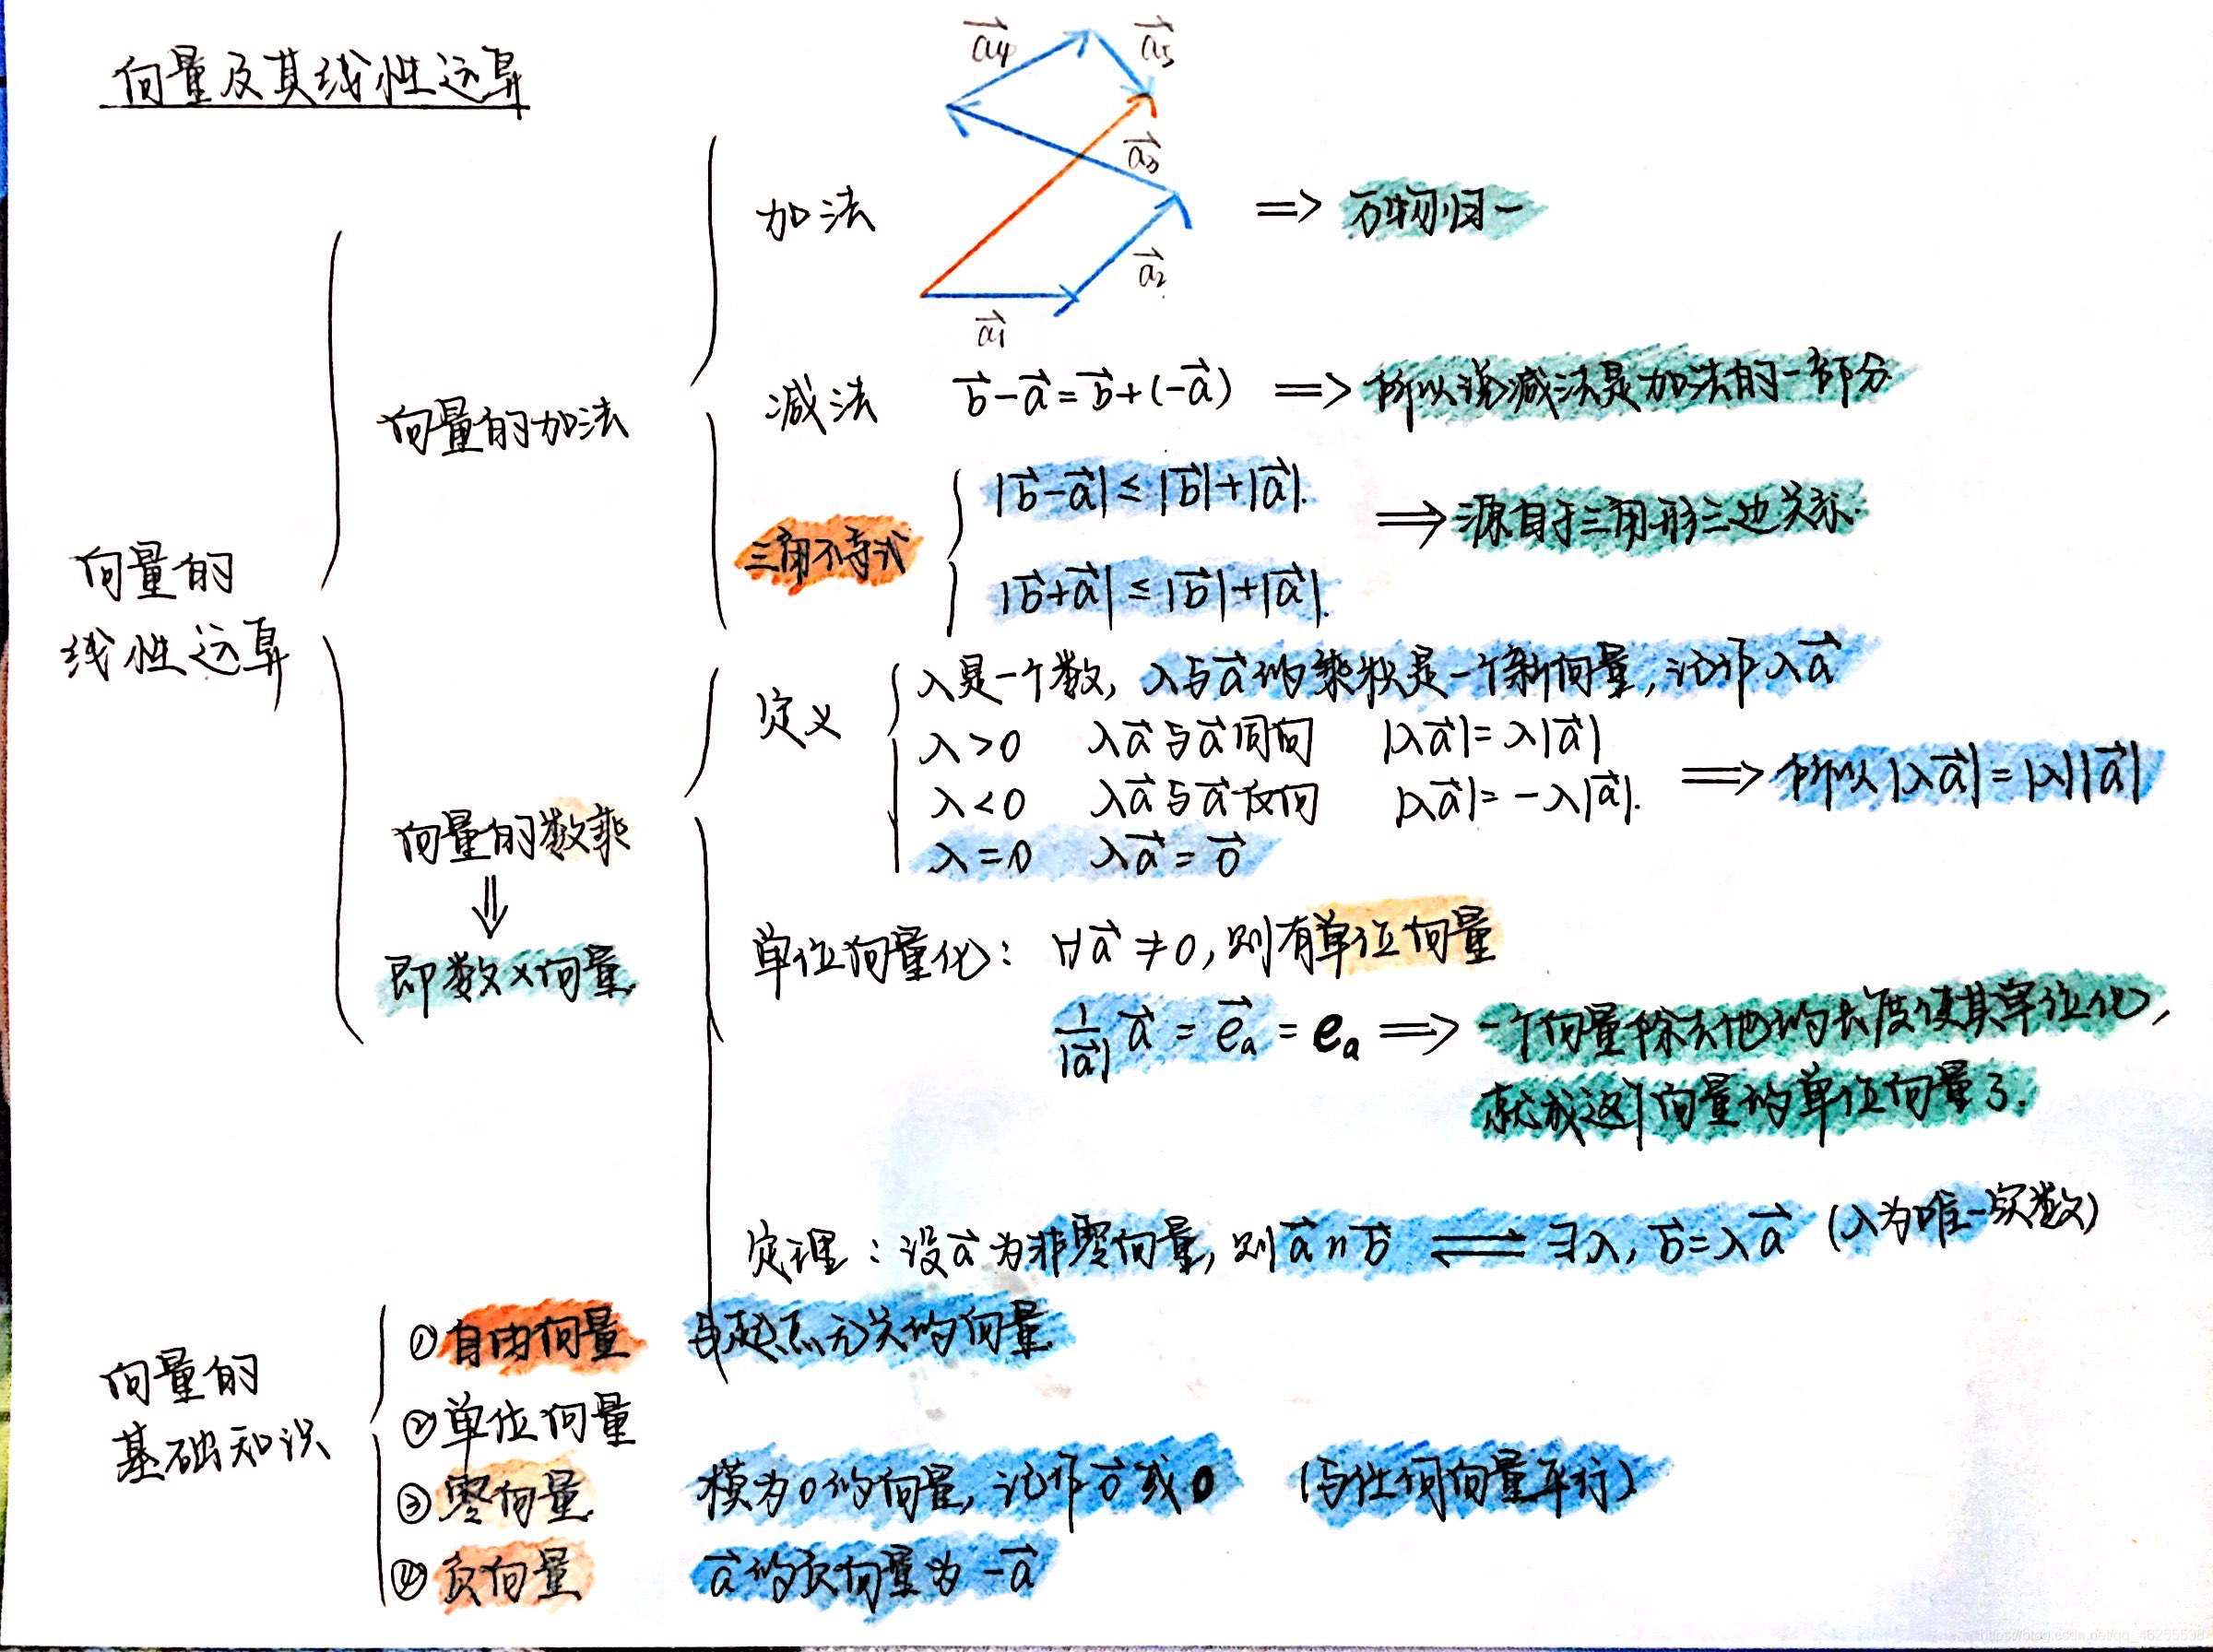 向量及其线性运算
a₄→ a₅→
a₃→
a₂→
a₁→
加法 => 万物归一
向量的加法
减法 b→-a→=b→+(-a→) => 所以说减法是加法的一部分
三角不等式
|b→-a→|≤|b→|+|a→|.
=> 源自于三角形三边关系.
|b→+a→|≤|b→|+|a→|.
向量的
线性运算
定义
λ是一个数, λ与a→的乘积是一个新向量, 记作λa→
λ>0 λa→与a→同向 |λa→|=λ|a→|
λ<0 λa→与a→反向 |λa→|=-λ|a→|. => 所以|λa→|=|λ||a→|
λ=0 λa→=0→
向量的数乘
⇓
即数×向量.
单位向量化: ∀a→≠0, 则有单位向量
1/|a→| a→ = eₐ→ = eₐ => 一个向量除去他的长度使其单位化,
就成这个向量的单位向量了.
定理: 设a→为非零向量, 则a→∥b→ ⇌ ∃λ, b→=λa→ (λ为唯一实数)
向量的
基础知识
①自由向量 与起点无关的向量.
②单位向量
③零向量. 模为0的向量, 记作0→或0 (与任何向量平行)
④负向量 a→的负向量为-a→